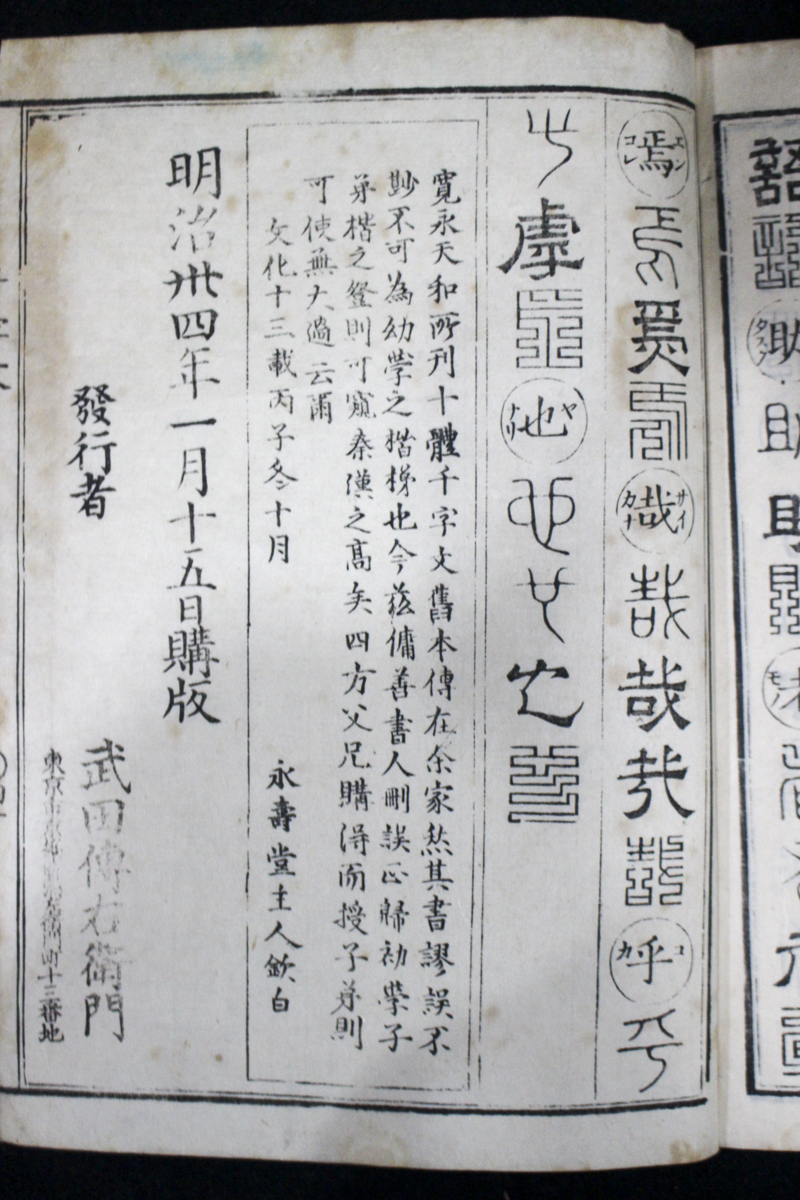 語
助
タスク
助
助
者
焉
エン
コレ
焉
焉
哉
サイ
カナ
哉
哉
哉
哉
呼
コ
カ
乎
乎
乎
也
ヤ
ナリ
也
也
也
也
寛永天和所刊十體千字文舊本傳在余家然其書謬誤不
尠不可為幼學之楷梯也今茲傭善書人刪誤正歸初學子
弟楷之登則可窺秦漢之高矣四方父兄購得而授子弟則
可使無大過云爾
文化十三載丙子冬十月
永壽堂主人欽白
明治卅四年一月十五日購版
發行者
武田傳右衛門
東京市 町十三番地